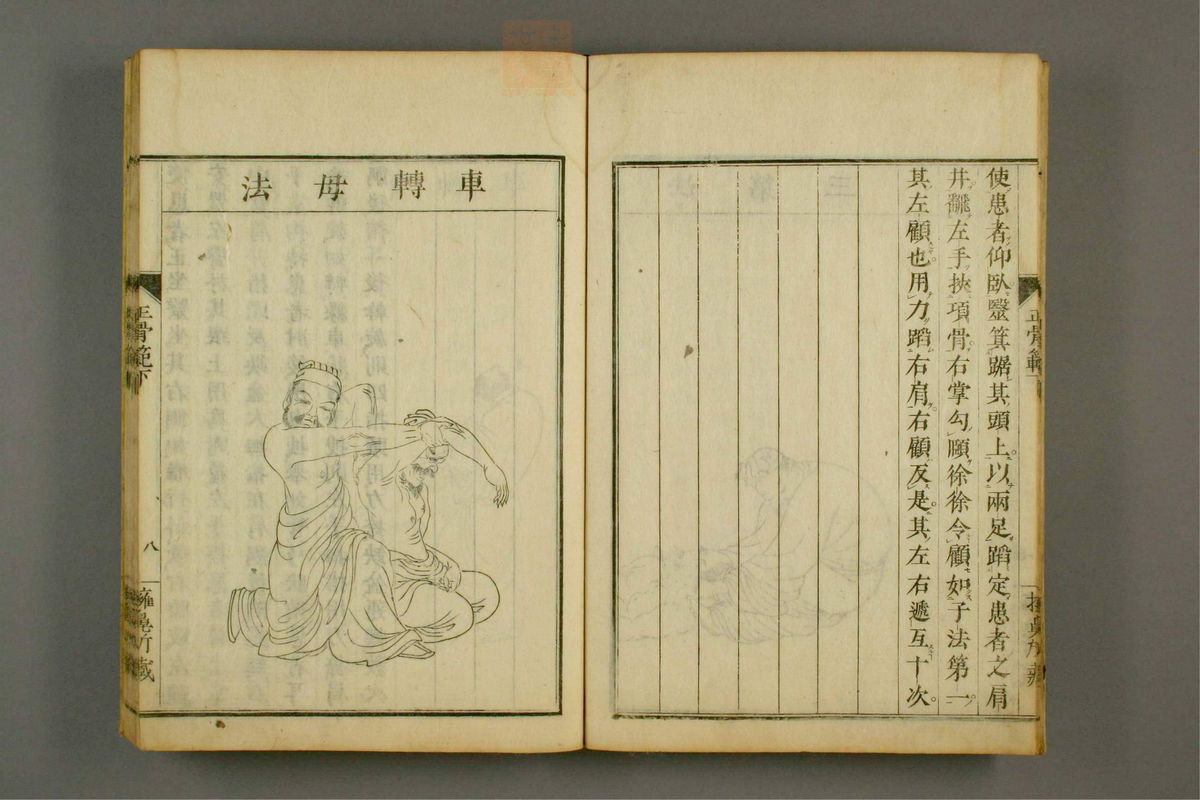 使患者仰臥毉箕踞其頭上以兩足蹈定患者之肩
井翫左手挾項骨右掌勾頤徐徐令顧如子法第一
其左顧也用力蹈右肩右顧反是其左右遞互十次
車轉母法
正骨範下
八